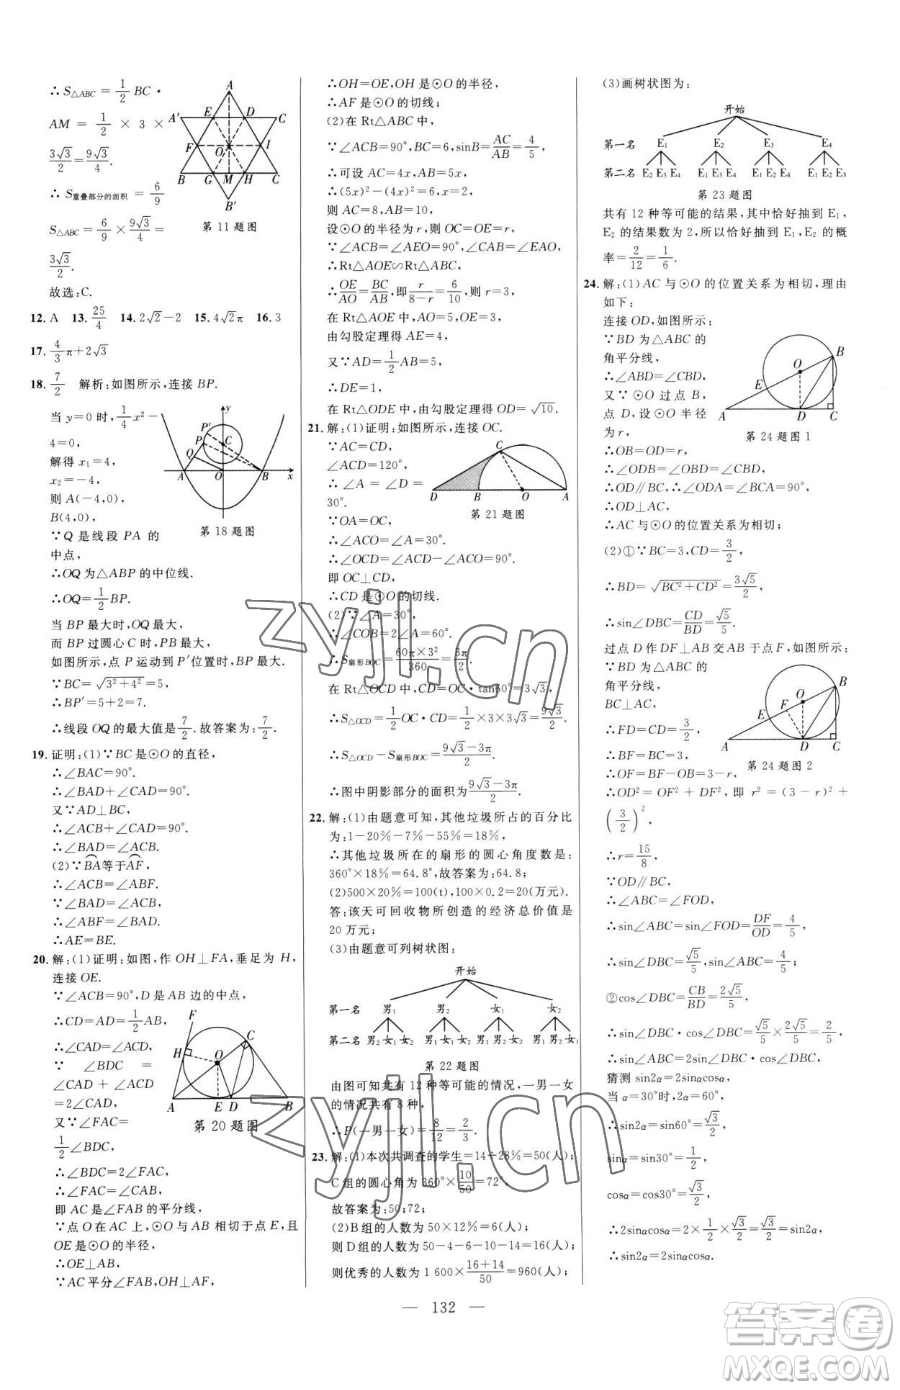 ∴S△ABC=1/2 BC·
AM=1/2×3×
3√3/2=9√3/4.
∴S重叠部分的面积=6/9
S△ABC=6/9×9√3/4=
3√3/2.
故选:C.
第11题图
12. A 13. 25/4 14. 2√2-2 15. 4√2π 16. 3
17. 4/3π+2√3
18. 7/2 解析:如图所示,连接BP.
当y=0时,1/4x²-
4=0,
解得x₁=4,
x₂=-4,
则A(-4,0),
B(4,0),
∵Q是线段PA的
中点,
第18题图
∴OQ为△ABP的中位线.
∴OQ=1/2BP.
当BP最大时,OQ最大,
而BP过圆心C时,PB最大,
如图所示,点P运动到P′位置时,BP最大,
∵BC=√(3²+4²)=5,
∴BP′=5+2=7.
∴线段OQ的最大值是7/2.故答案为:7/2.
19. 证明:(1)∵BC是⊙O的直径,
∴∠BAC=90°.
∴∠BAD+∠CAD=90°.
又∵AD⊥BC,
∴∠ACB+∠CAD=90°.
∴∠BAD=∠ACB.
(2)∵BA等于AF,
∴∠ACB=∠ABF.
∴∠ABF=∠BAD.
∴AE=BE.
20. 解:(1)证明:如图,作OH⊥FA,垂足为H,
连接OE.
∵∠ACB=90°,D是AB边的中点,
∴CD=AD=1/2AB.
∴∠CAD=∠ACD.
∵∠BDC=
∠CAD+∠ACD
=2∠CAD,
又∵∠FAC=
1/2∠BDC,
第20题图
∴∠BDC=2∠FAC,
∴∠FAC=∠CAB,
即AC是∠FAB的平分线,
∵点O在AC上,⊙O与AB相切于点E,且
OE是⊙O的半径,
∴OE⊥AB.
∵AC平分∠FAB,OH⊥AF,
∴OH=OE,OH是⊙O的半径,
∴AF是⊙O的切线;
(2)在Rt△ABC中,
∵∠ACB=90°,sinB=AC/AB=4/5,
∴可设AC=4x,AB=5x,
∴(5x)²-(4x)²=6²,x=2,
则AC=8,AB=10,
设⊙O的半径为r,则OC=OE=r,
∵∠ACB=∠AEO=90°,∠CAB=∠EAO,
∴Rt△AOE∽Rt△ABC,
∴OE/AO=BC/AB,即r/(8-r)=6/10,则r=3,
在Rt△AOE中,AO=5,OE=3,
由勾股定理得AE=4,
又∵AD=1/2AB=5,
∴DE=1,
在Rt△ODE中,由勾股定理得OD=√10.
21. 解:(1)证明:如图所示,连接OC.
∵AC=CD,
∠ACD=120°,
∴∠A=∠D=
30°.
∵OA=OC,
第21题图
∴∠ACO=∠A=30°.
∴∠OCD=∠ACD-∠ACO=90°.
即OC⊥CD,
∴CD是⊙O的切线.
(2)∵∠A=30°,
∴∠COB=2∠A=60°.
∴S扇形BOC=60π×3²/360=3π/2.
在Rt△OCD中,CD=OC·tan60°=3√3,
∴S△OCD=1/2OC·CD=1/2×3×3√3=9√3/2.
∴S△OCD-S扇形BOC=(9√3-3π)/2.
∴图中阴影部分的面积为(9√3-3π)/2.
22. 解:(1)由题意可知,其他垃圾所占的百分比
为:1-20%-7%-55%=18%,
∴其他垃圾所在的扇形的圆心角度数是:
360°×18%=64.8°,故答案为:64.8;
(2)500×20%=100(t),100×0.2=20(万元).
答:该天可回收物所创造的经济总价值是
20万元;
(3)由题意可列树状图:
开始
第一名 男₁ 男₂ 女₁ 女₂
第二名 男₂女₁女₂ 男₁女₁女₂ 男₁男₂女₂ 男₁男₂女₁
第22题图
由图可知共有12种等可能的情况,一男一女
的情况共有8种,
∴P(一男一女)=8/12=2/3.
23. 解:(1)本次共调查的学生=14÷28%=50(人);
C组的圆心角为360°×10/50=72°,
故答案为:50;72;
(2)B组的人数为50×12%=6(人);
则D组的人数为50-4-6-10-14=16(人)
则优秀的人数为1 600×(16+14)/50=960(人);
(3)画树状图为:
开始
第一名 E₁ E₂ E₃ E₄
第二名 E₂ E₃ E₄ E₁ E₃ E₄ E₁ E₂ E₄ E₁ E₂ E₃
第23题图
共有12种等可能的结果,其中恰好抽到E₁,
E₂的结果数为2,所以恰好抽到E₁,E₂的概
率=2/12=1/6.
24. 解:(1)AC与⊙O的位置关系为相切,理由
如下:
连接OD,如图所示:
∵BD为△ABC的
角平分线,
∴∠ABD=∠CBD,
又∵⊙O过点B、
点D,设⊙O半径
为r,
第24题图1
∴OB=OD=r,
∴∠ODB=∠OBD=∠CBD,
∴OD∥BC,∴∠ODA=∠BCA=90°,
∴OD⊥AC,
∴AC与⊙O的位置关系为相切;
(2)①∵BC=3,CD=3/2,
∴BD=√(BC²+CD²)=3√5/2,
∴sin∠DBC=CD/BD=√5/5.
过点D作DF⊥AB交AB于点F,如图所示:
∵BD为△ABC的
角平分线,
BC⊥AC,
∴FD=CD=3/2,
∴BF=BC=3,
第24题图2
∴OF=BF-OB=3-r,
∴OD²=OF²+DF²,即r²=(3-r)²+
(3/2)²,
∴r=15/8,
∵OD∥BC,
∴∠ABC=∠FOD,
∴sin∠ABC=sin∠FOD=DF/OD=4/5,
∴sin∠DBC=√5/5,sin∠ABC=4/5;
②cos∠DBC=CB/BD=2√5/5,
∴sin∠DBC·cos∠DBC=√5/5×2√5/5=2/5,
∴sin∠ABC=2sin∠DBC·cos∠DBC,
猜测sin2α=2sinαcosα,
当α=30°时,2α=60°,
∴sin2α=sin60°=√3/2,
sinα=sin30°=1/2,
cosα=cos30°=√3/2,
∴2sinαcosα=2×1/2×√3/2=√3/2=sin2α,
∴sin2α=2sinαcosα.
— 132 —
zyjl.cn
zyjl.cn
答案圈
MXQE.COM